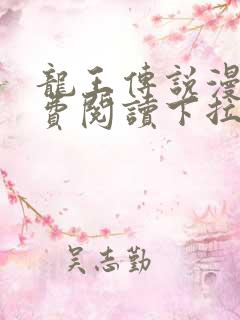 龍王傳說漫
費閱讀下拉
吴志勤